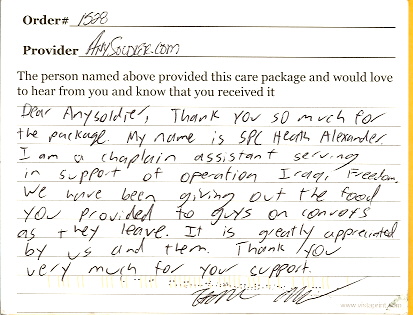 Order# 1528
Provider AnySoldier.com
The person named above provided this care package and would love
to hear from you and know that you received it
Dear Anysoldier, Thank you so much for
the package. My name is SPC Heath Alexander.
I am a chaplain assistant serving
in support of operation Iraqi Freedom.
We have been giving out the food
you provided to guys on convoys
as they leave. It is greatly appreciated
by us and them. Thank you
very much for your support.
www.vistaprint.com